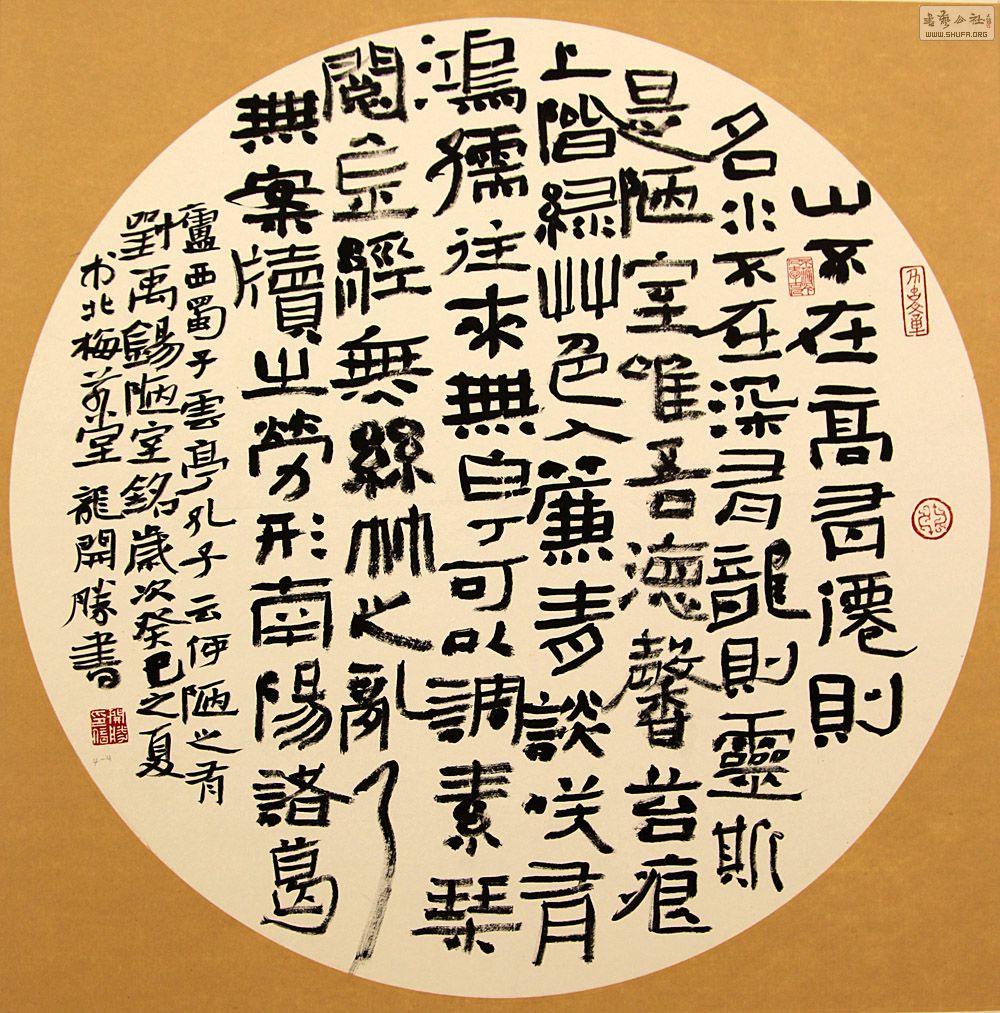 山不在高有僊則
名水不在深有龍則靈斯
是陋室唯吾德馨苔痕
上階綠艸色入簾青談咲有
鴻儒往來無白丁可以調素琴
閱金經無絲竹之亂耳
無案牘之勞形南陽諸葛
廬西蜀子雲亭孔子云何陋之有
劉禹錫陋室銘歲次癸巳之夏
北梅堂龍開勝書
開勝印信
4-4
書藝公社
WWW.SHUFA.ORG